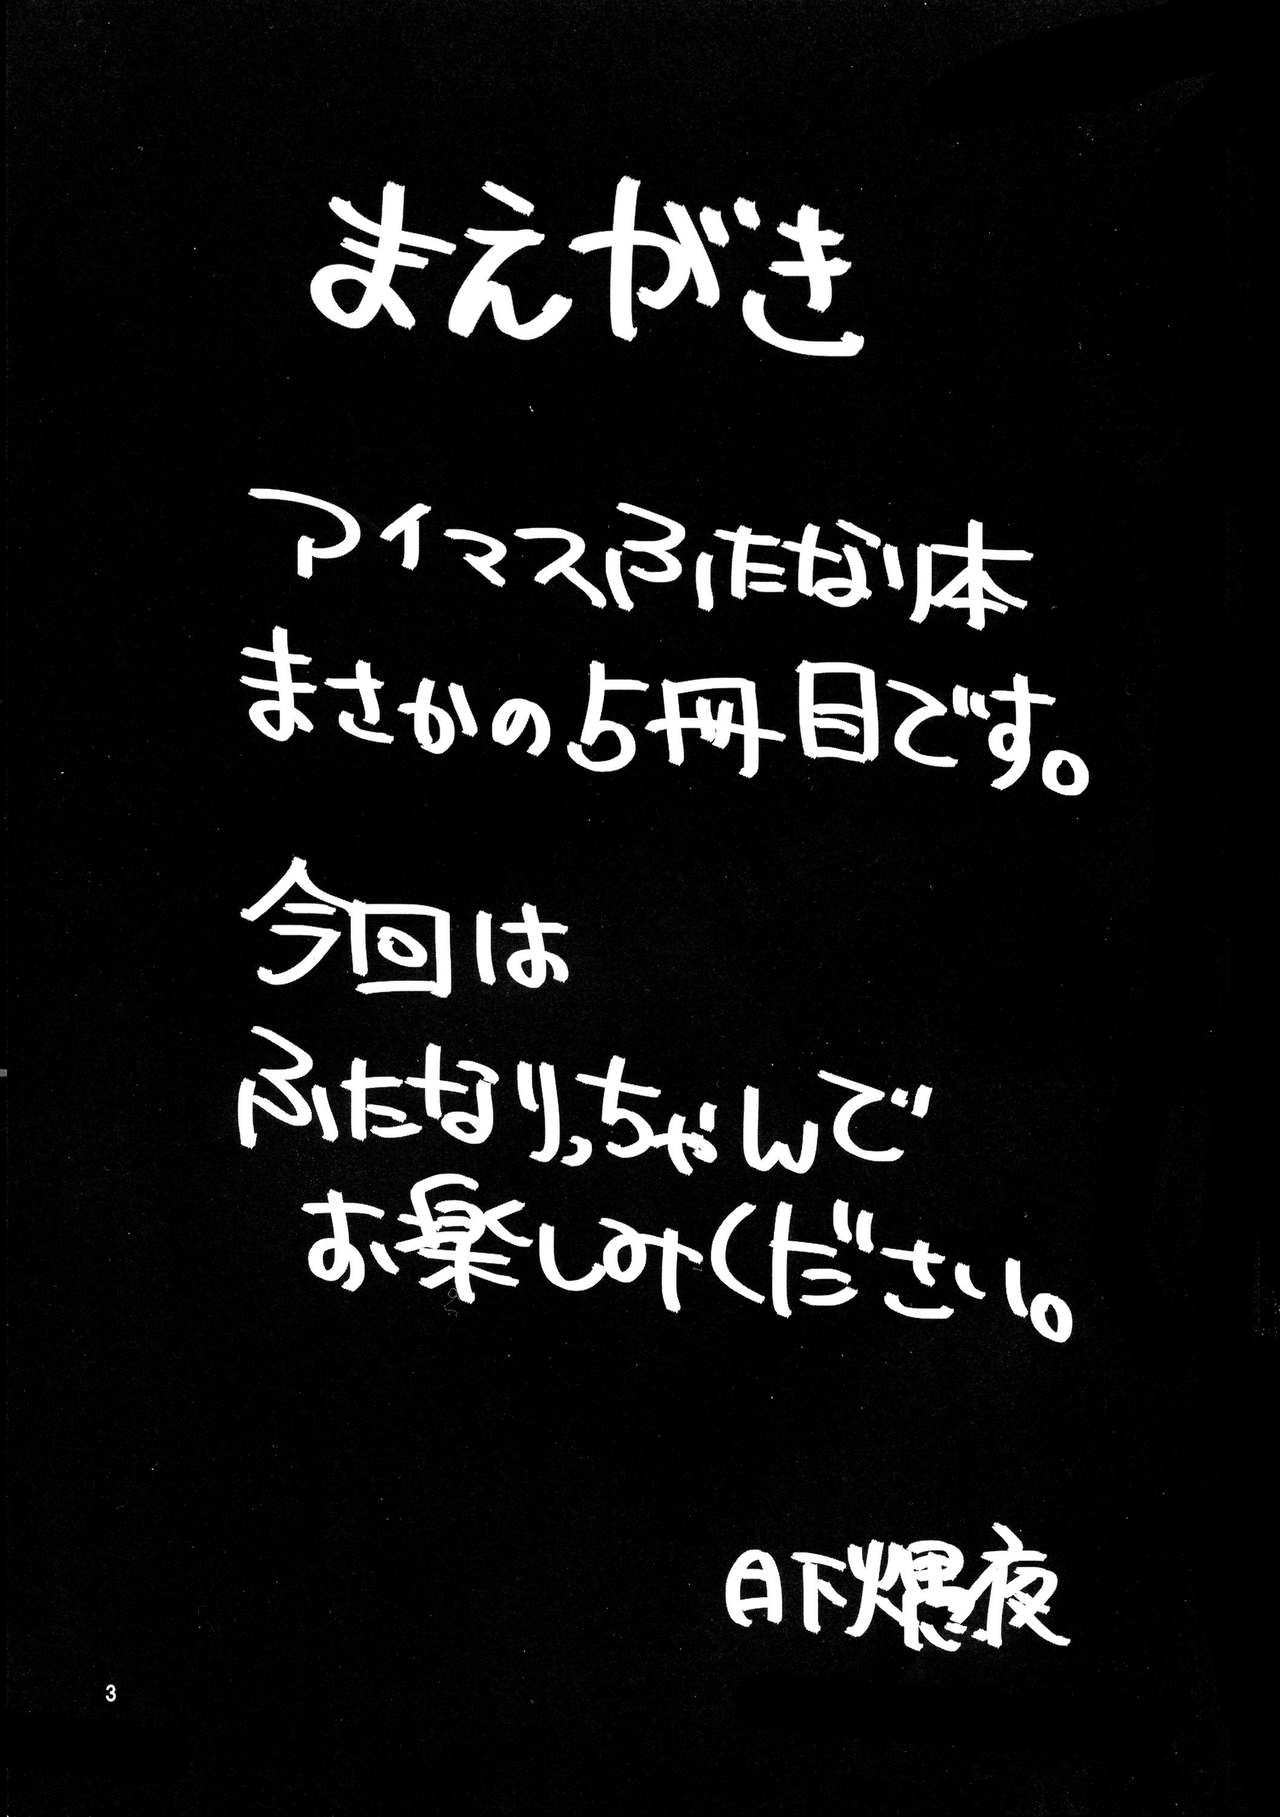 まえがき
アイマスふたなり本
まさかの5冊目です。
今回は
ふたなりっちゃんで
お楽しみください。
日下煜夜
3